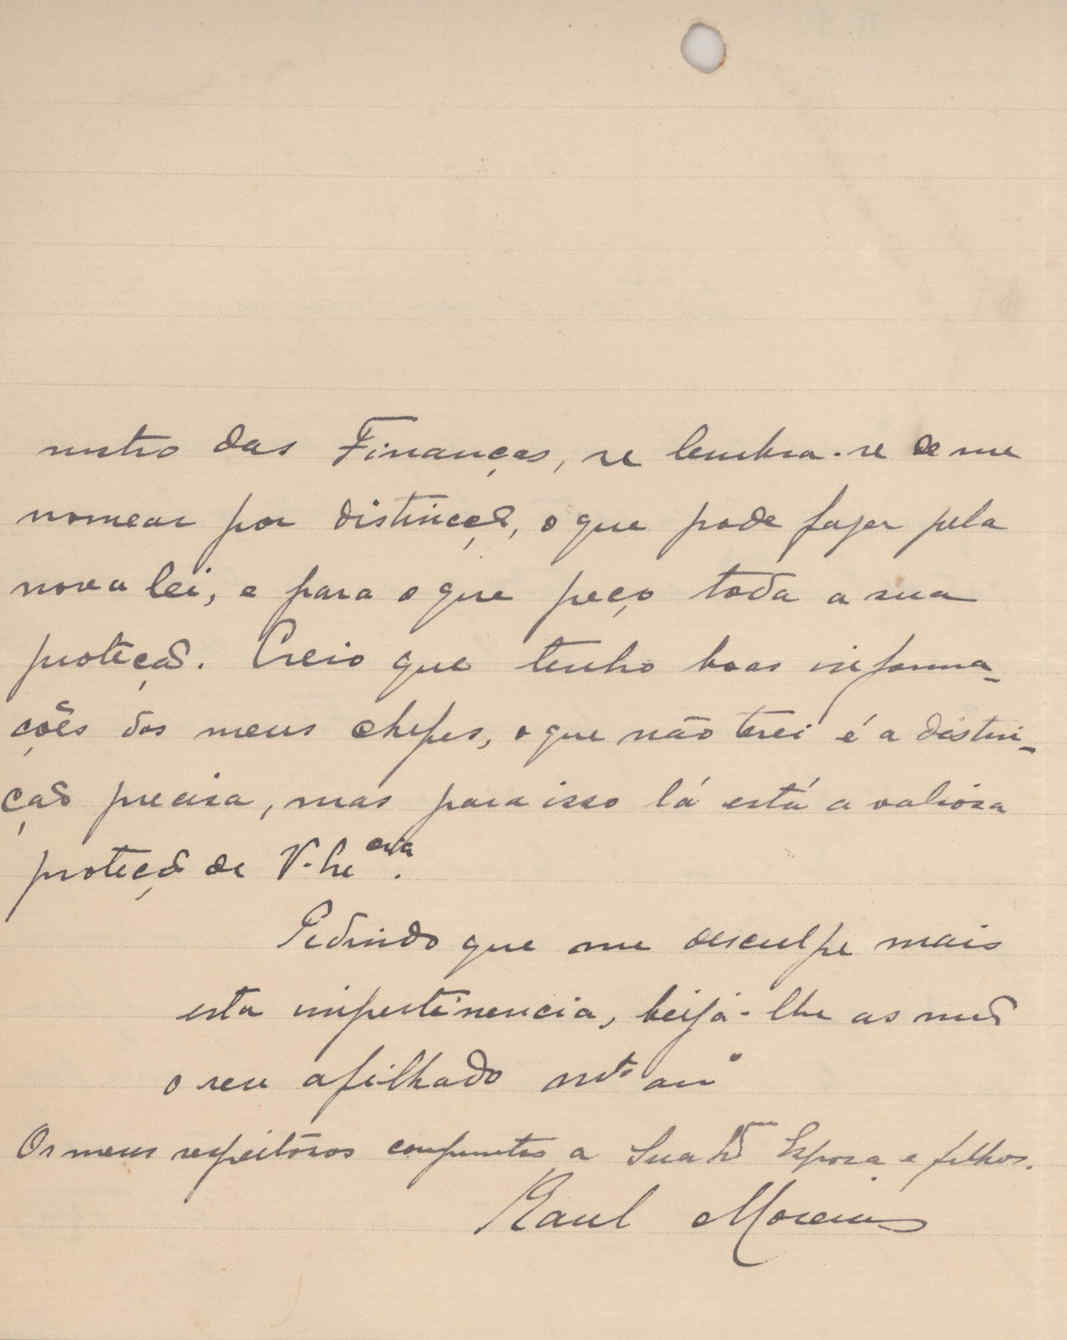 nistro das Finanças, se lembra-se de me
nomear por distincçao, o que pode fazer pela
nova lei, e para o que peço toda a sua
proteçao. Creio que tenho boas informa-
ções dos meus chefes, o que não terei é a distin-
ção precisa, mas para isso lá está a valiosa
proteçao de V. Ex.cia.
Pedindo que me desculpe mais
esta impertinencia, beija-lhe as mãos
o seu afilhado mto amo
Os meus respeitosos cumprimentos a Sua Esposa e filhos.
Raul Moreira